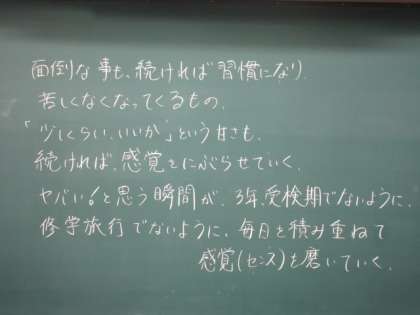 面倒な事も、続ければ習慣になり、
苦しくなくなってくるもの。
「少しくらい、いいか」という甘さも、
続ければ、感覚をにぶらせていく。
ヤバい!と思う瞬間が、3年、受検期でないように、
修学旅行でないように、毎日を積み重ねて
感覚(センス)を磨いていく。